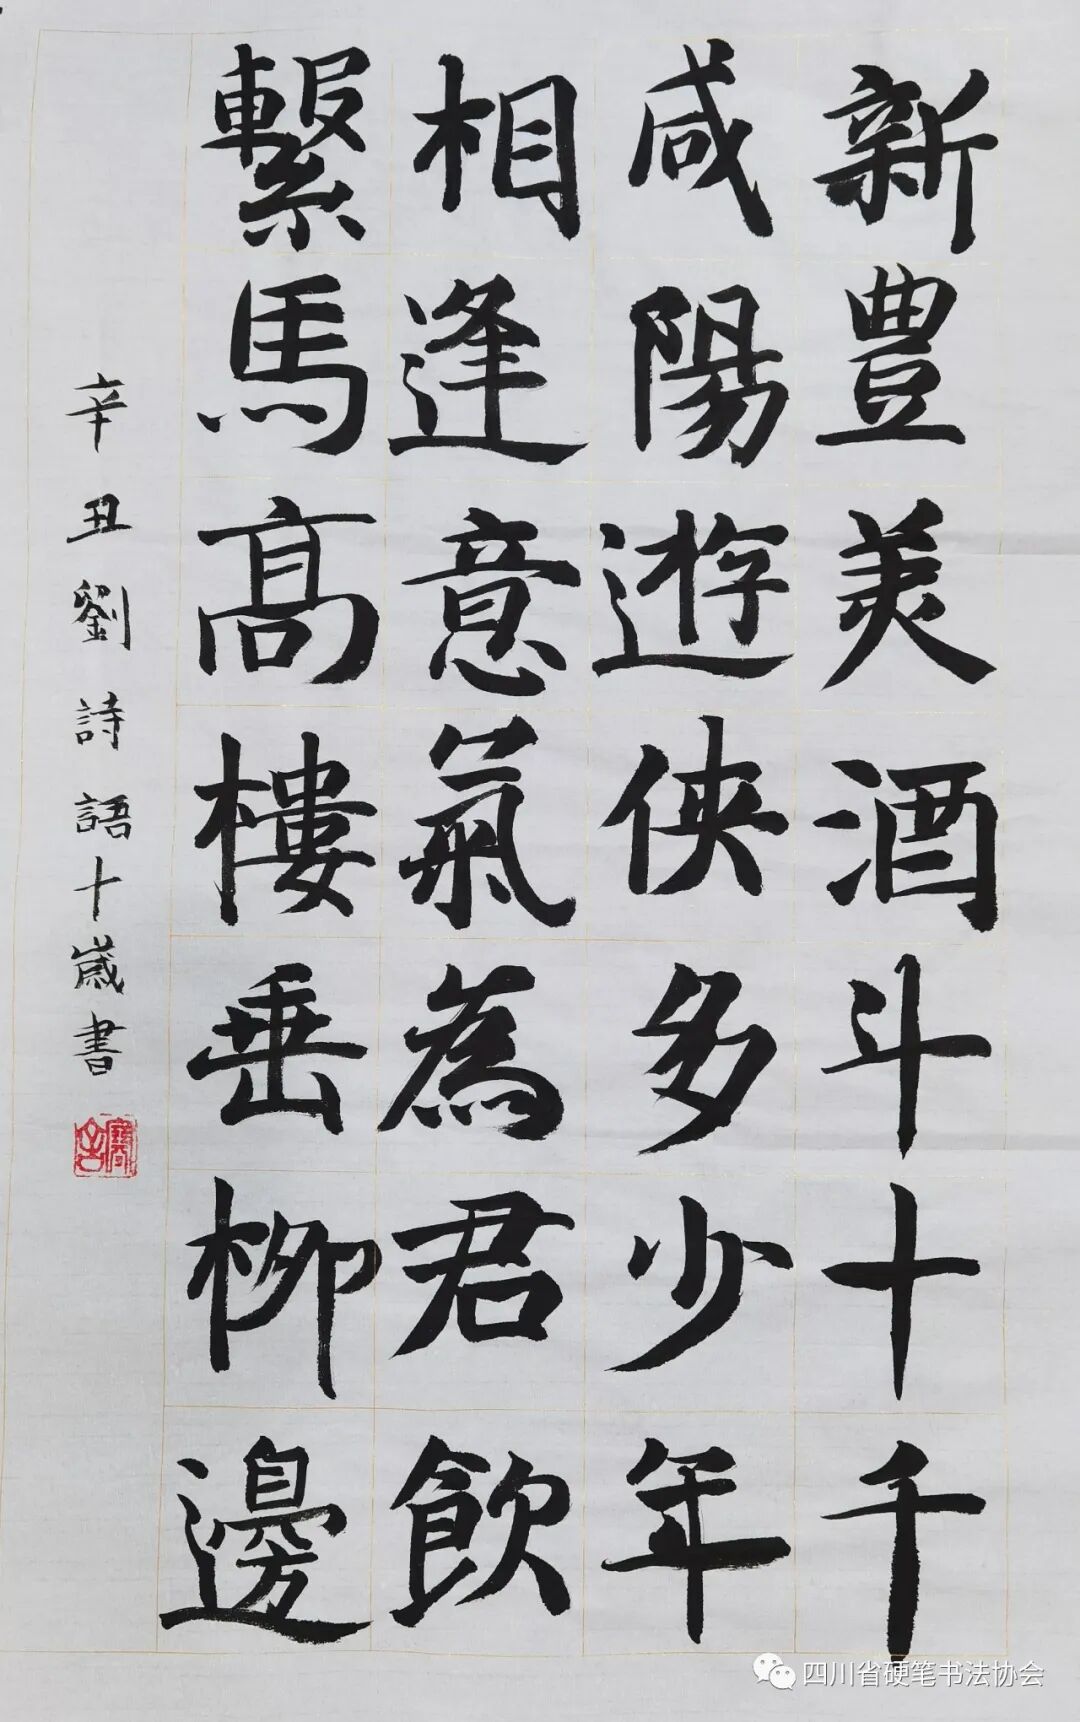 新豐美酒斗十千
咸陽遊俠多少年
相逢意氣為君飲
繫馬高樓垂柳邊
辛丑劉詩語十歲書
四川省硬笔书法协会